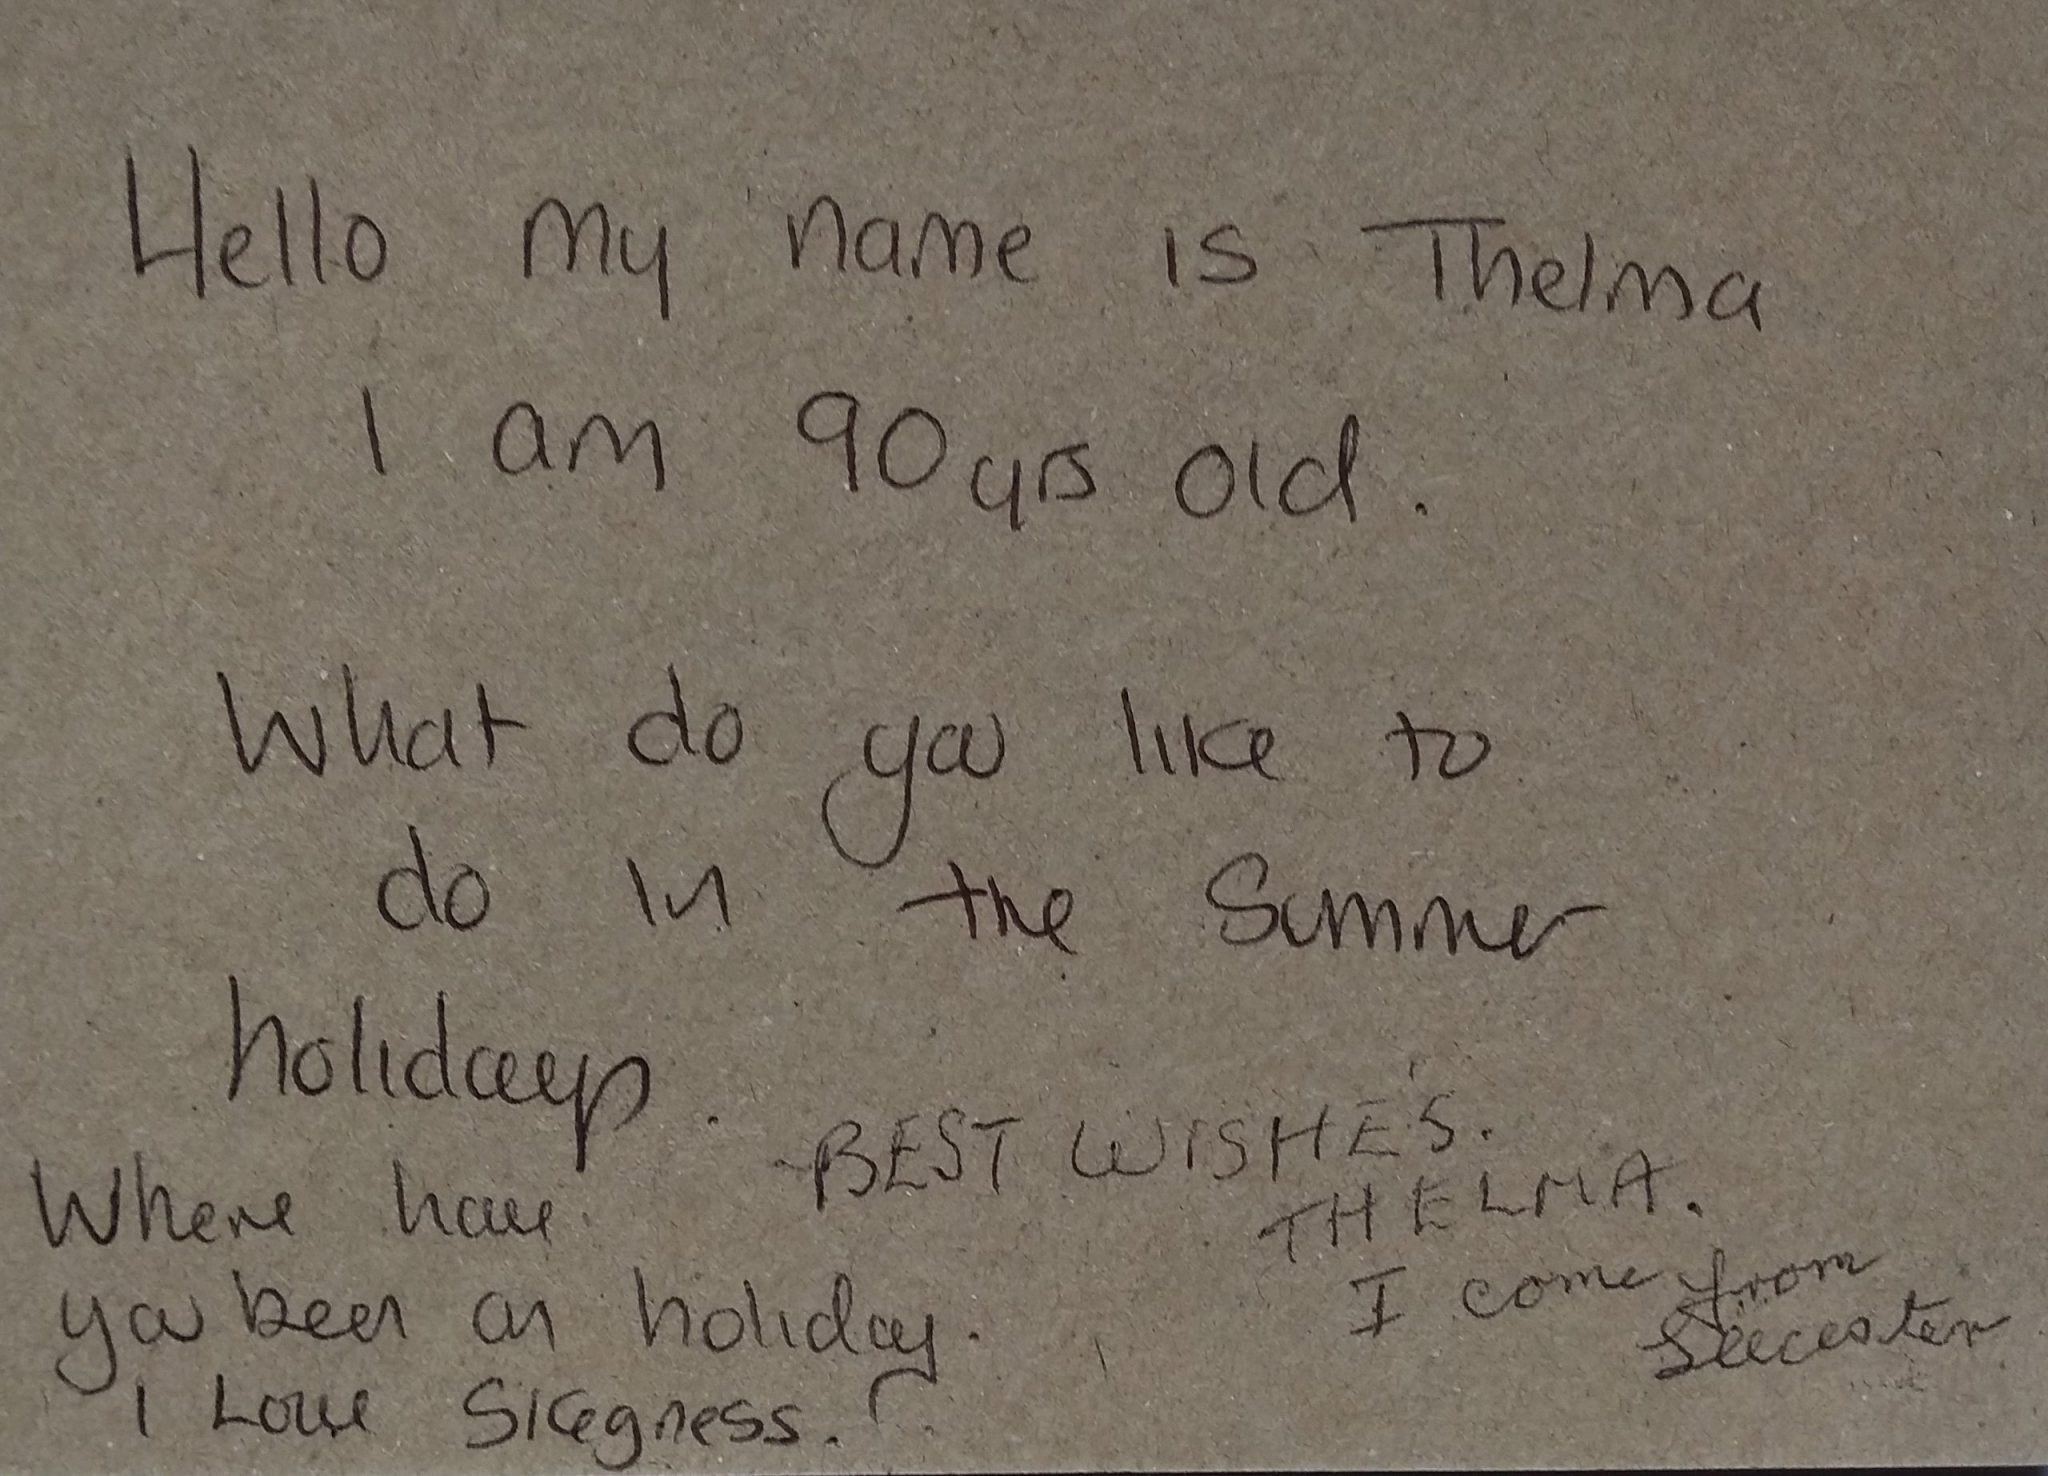 Hello my name is Thelma
I am 90yrs old.
What do you like to
do in the Summer
holidays.
Where have
you been on holiday.
I Love Skegness.
BEST WISHES.
THELMA.
I come from
Leicester